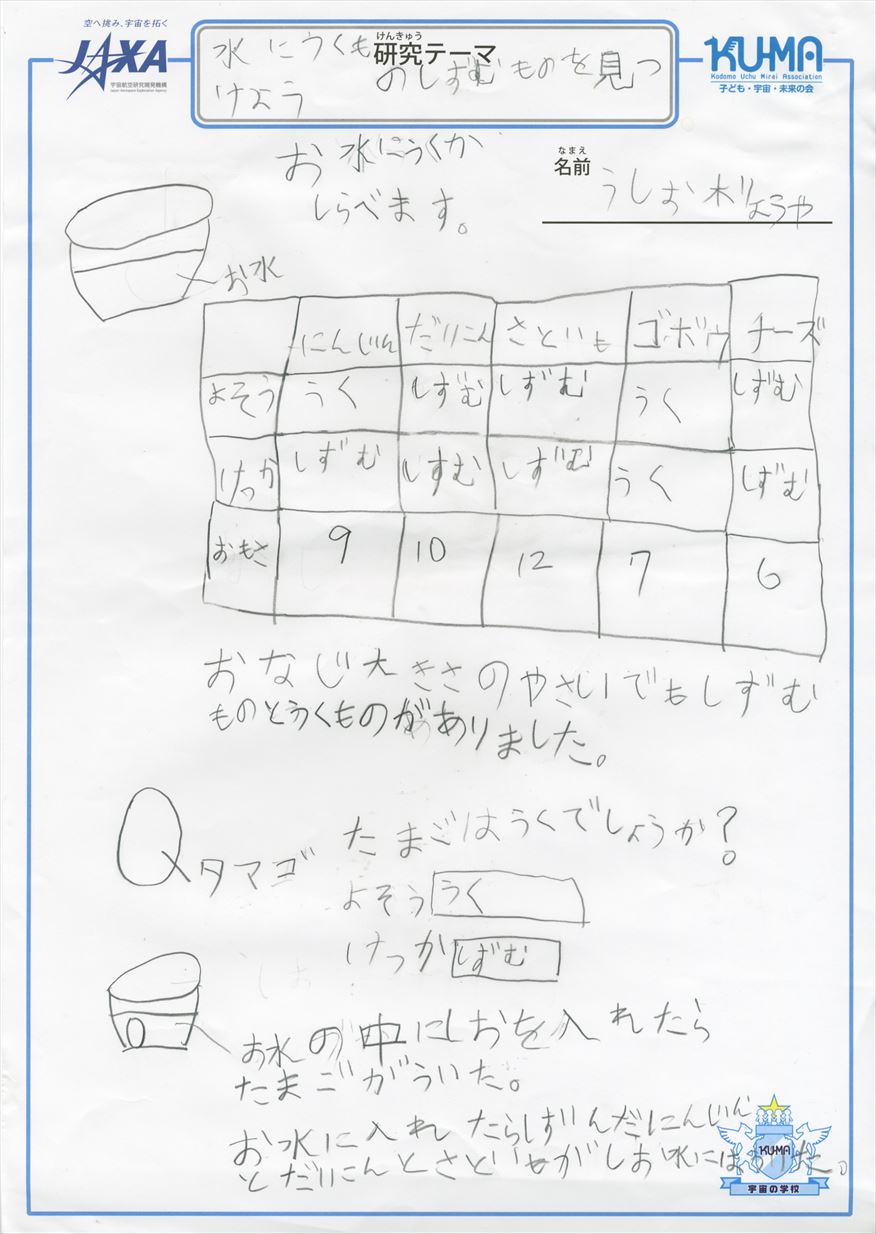 空へ挑み、宇宙を拓く
JAXA
宇宙航空研究開発機構
Japan Aerospace Exploration Agency
けんきゅう
研究テーマ
水にうくものしずむものを見つ
けよう
KU-MA
Kodomo Uchu Mirai Association
子ども・宇宙・未来の会
お水にうくか
しらべます。
なまえ
名前
うしお木りょうや
お水
にんじん だいこん さといも ゴボウ チーズ
よそう うく しずむ しずむ うく しずむ
けっか しずむ しずむ しずむ うく しずむ
おもさ 9 10 12 7 6
おなじ大きさのやさいでもしずむ
ものとうくものがありました。
タマゴ
たまごはうくでしょうか?
よそう うく
けっか しずむ
お水の中にしおを入れたら
たまごがういた。
お水に入れたらしずんだにんじん
とだいこんとさといもがしお水には
KU-MA
宇宙の学校